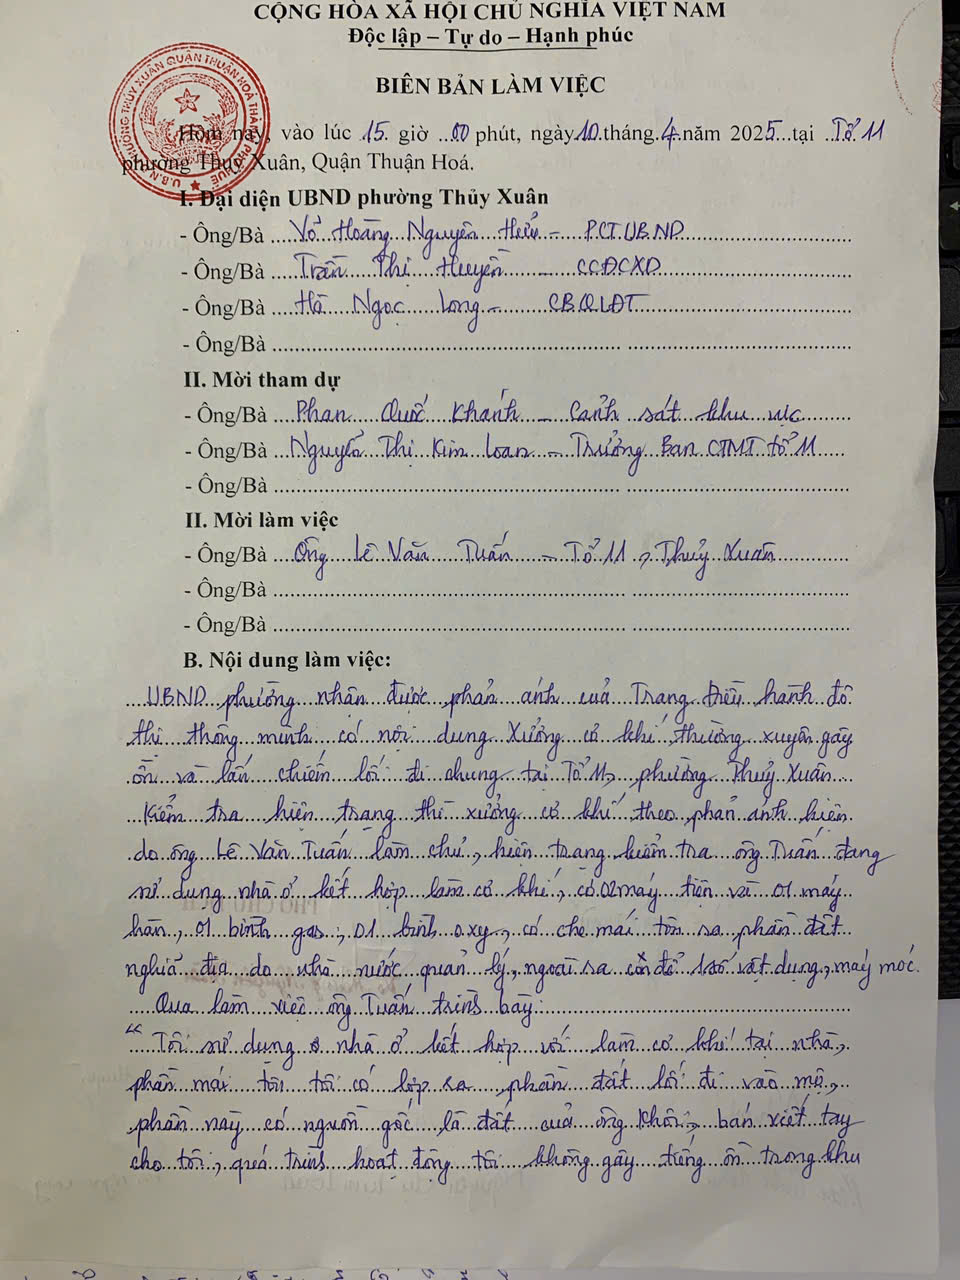 CỘNG HÒA XÃ HỘI CHỦ NGHĨA VIỆT NAM
Độc lập – Tự do – Hạnh phúc
BIÊN BẢN LÀM VIỆC
Hôm nay, vào lúc 15 giờ 00 phút, ngày 10 tháng 4 năm 2025 tại Tổ 11
phường Thủy Xuân, Quận Thuận Hoá.
I. Đại diện UBND phường Thủy Xuân
- Ông/Bà Võ Hoàng Nguyên Hiếu - PCT.UBND
- Ông/Bà Trần Thị Huyền - CCĐCXD
- Ông/Bà Hà Ngọc Long - CBQLĐT
- Ông/Bà
II. Mời tham dự
- Ông/Bà Phan Quốc Khánh - Cảnh sát khu vực
- Ông/Bà Nguyễn Thị Kim Loan - Trưởng Ban CTMT tổ 11
- Ông/Bà
II. Mời làm việc
- Ông/Bà Ông Lê Văn Tuấn - Tổ 11, Thủy Xuân
- Ông/Bà
- Ông/Bà
B. Nội dung làm việc:
UBND phường nhận được phản ánh của Trang điều hành đô
thị thông minh có nội dung Xưởng cơ khí thường xuyên gây
ồn và lấn chiếm lối đi chung tại Tổ 11, phường Thủy Xuân
Kiểm tra hiện trạng thì xưởng cơ khí theo phản ánh hiện
do ông Lê Văn Tuấn làm chủ, hiện trạng kiểm tra ông Tuấn đang
sử dụng nhà ở kết hợp làm cơ khí, có 02 máy tiện và 01 máy
hàn, 01 bình gas, 01 bình oxy, có che mái tôn ra phần đất
nghĩa địa do nhà nước quản lý, ngoài ra còn để 1 số vật dụng, máy móc.
Qua làm việc ông Tuấn trình bày:
"Tôi sử dụng nhà ở kết hợp với làm cơ khí tại nhà,
phần mái tôn tôi có lợp ra phần đất lối đi vào mộ,
phần này có nguồn gốc là đất của ông Khôi, bán viết tay
cho tôi, quá trình hoạt động tôi không gây tiếng ồn trong khu